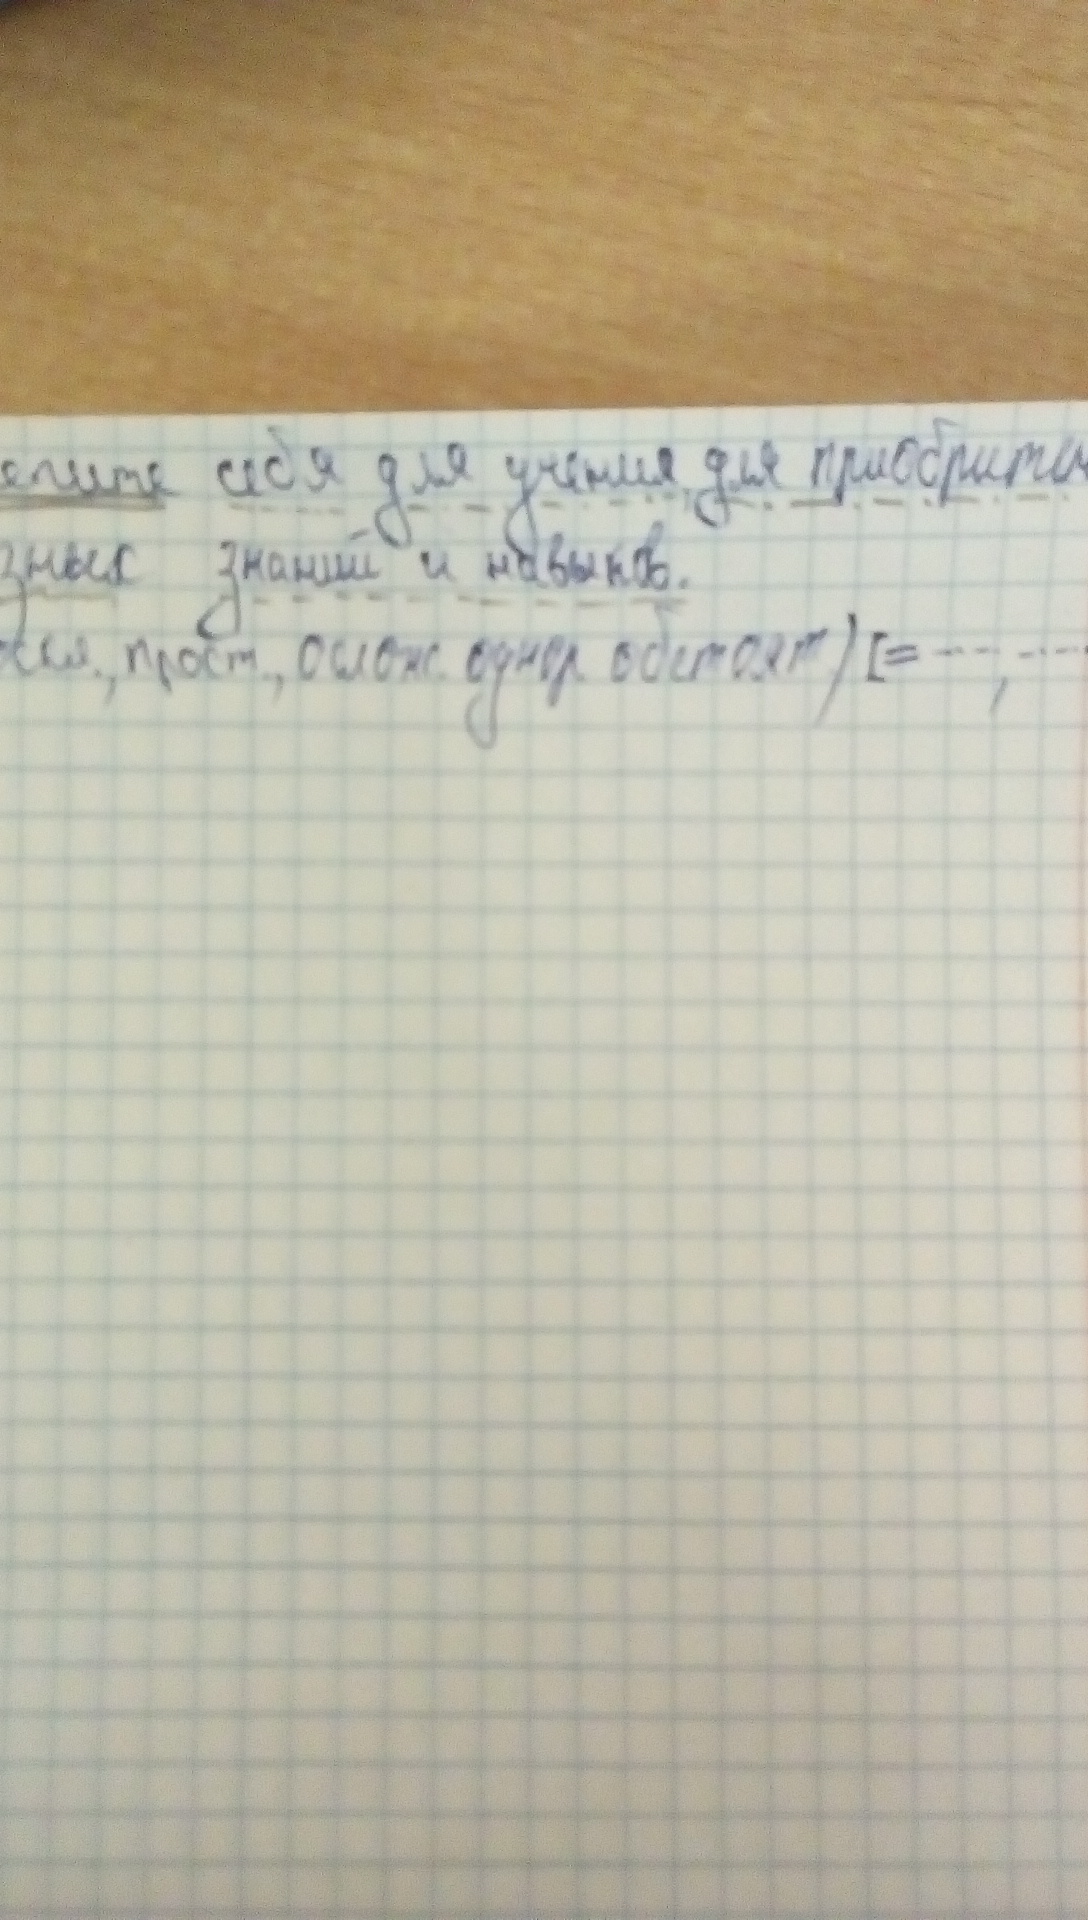 епите себя для учения, для приобриты
зных знаний и навыков.
оскл., прост., ослож. однор обстоят) [=